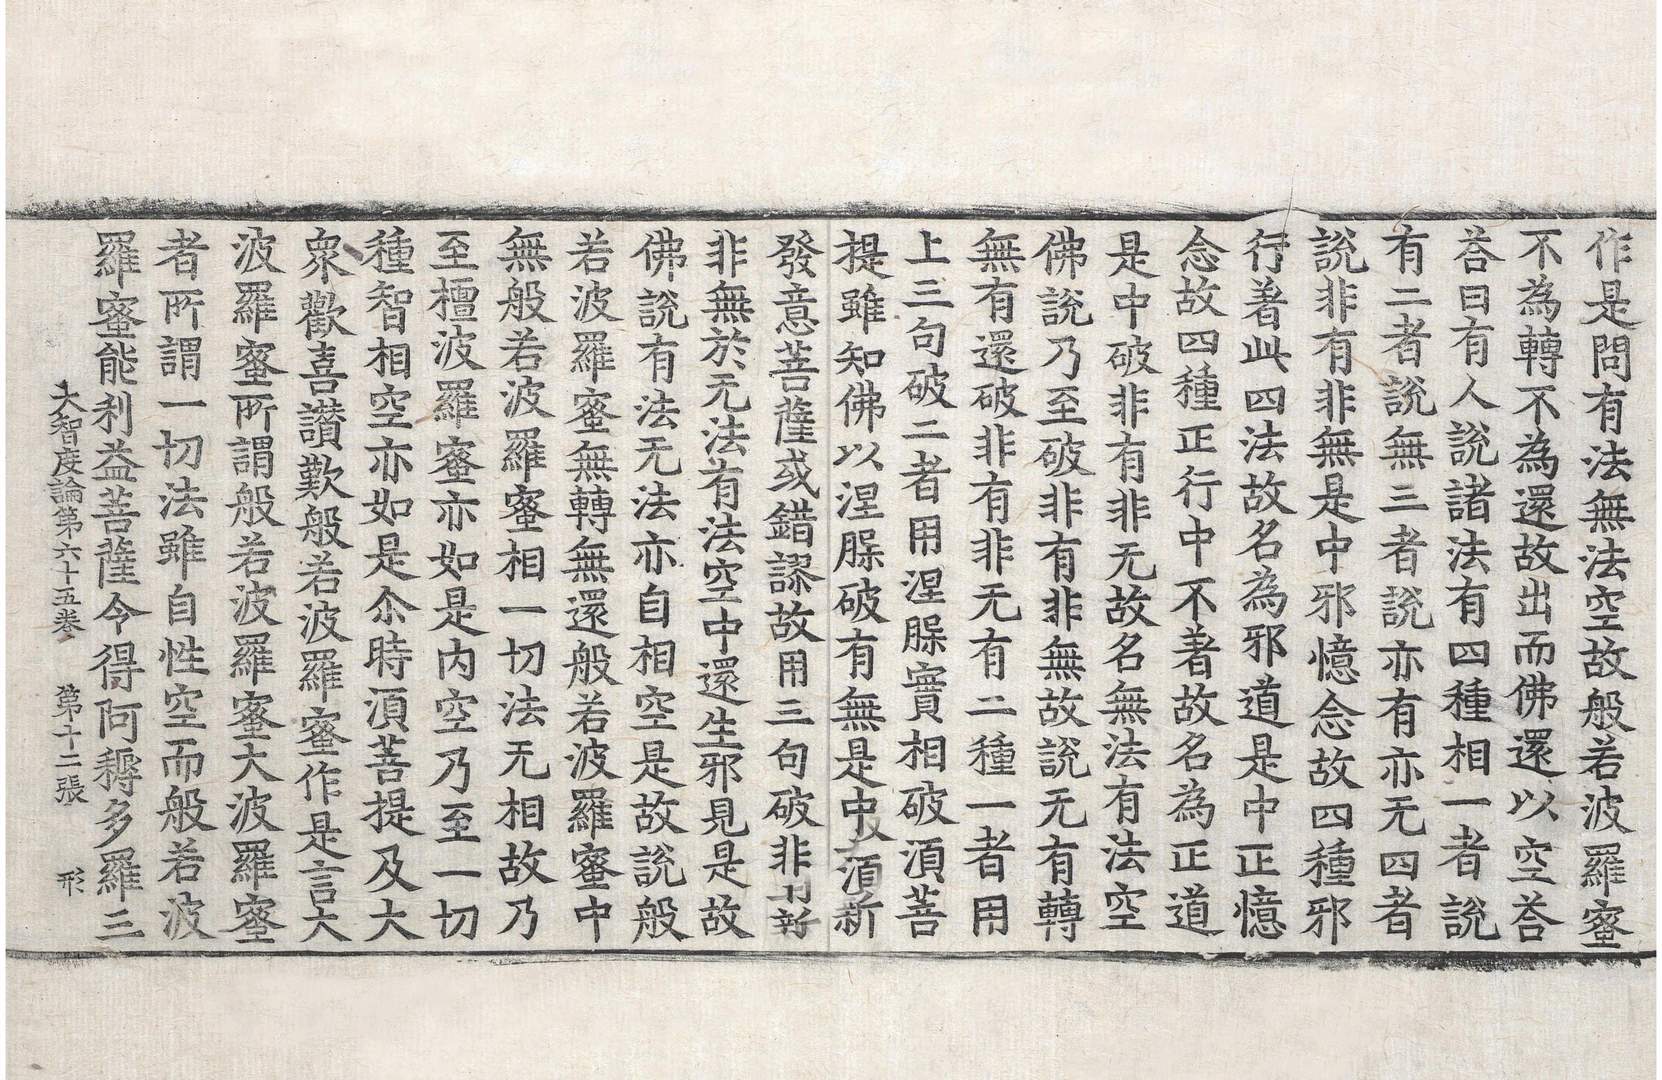 作是問有法無法空故般若波羅蜜
不為轉不為還故出而佛還以空荅
荅曰有人說諸法有四種相一者說
有二者說無三者說亦有亦无四者
說非有非無是中邪憶念故四種邪
行著此四法故名為邪道是中正憶
念故四種正行中不著故名為正道
是中破非有非无故名無法有法空
佛說乃至破非有非無故說无有轉
無有還破非有非无有二種一者用
上三句破二者用涅槃實相破湏菩
提雖知佛以涅槃破有無是中湏新
發意菩薩或錯謬故用三句破非有
非無於无法有法空中還生邪見是故
佛說有法无法亦自相空是故說般
若波羅蜜無轉無還般若波羅蜜中
無般若波羅蜜相一切法无相故乃
至檀波羅蜜亦如是內空乃至一切
種智相空亦如是尒時湏菩提及大
衆歡喜讃歎般若波羅蜜作是言大
波羅蜜所謂般若波羅蜜大波羅蜜
者所謂一切法雖自性空而般若波
羅蜜能利益菩薩令得阿耨多羅三
大智度論第六十五卷 第十二張 形